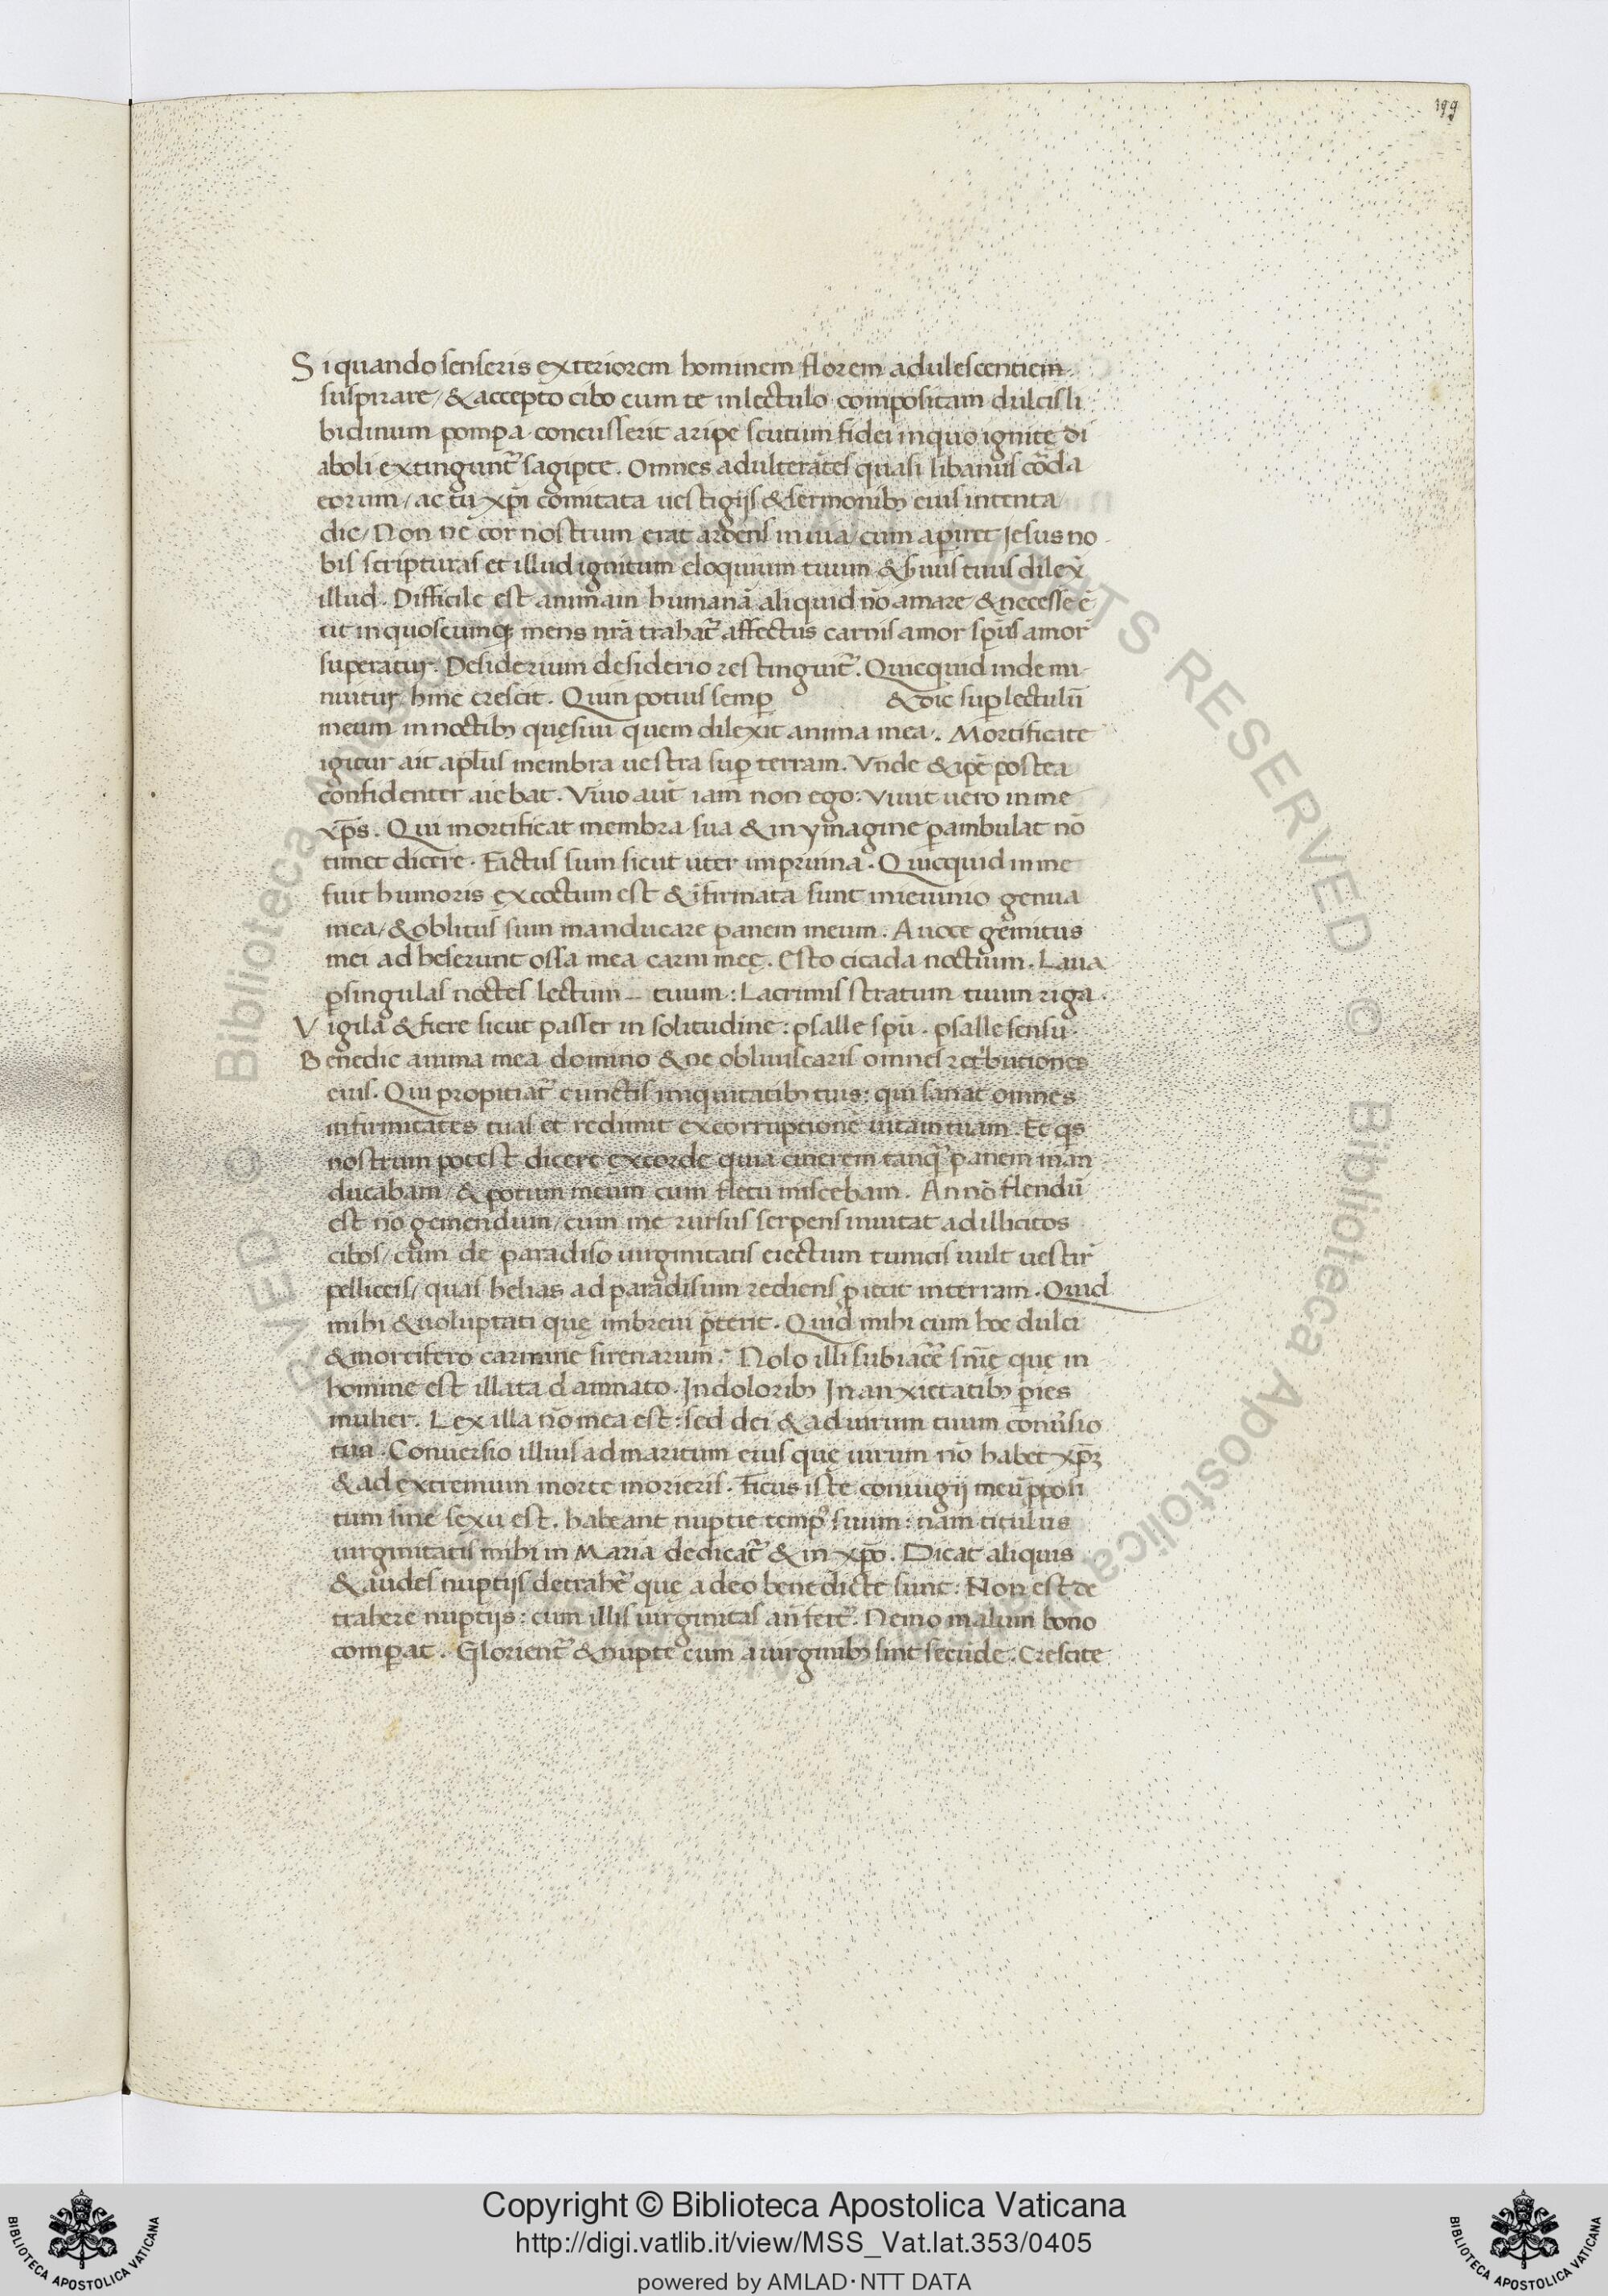 199
Si quando senseris exteriorem hominem florem adulescentiem
suspirare / & accepto cibo cum te in lectulo compositam dulcis li
bidinum pompa concusserit aripe scutum fidei in quo ignite di
aboli extingunt̃ sagipte. Omnes adulterãtes quasi libanus cõda
eorum / ac tu xp̃i comitata uestigijs & sermonibꝫ eius intenta
dic / Non ne cor nostrum erat ardens in uia / cum apiret Jesus no
bis scripturas et illud ignitum eloquium tuum & ẜuus tuus dilex̃
illud. Difficile est animam humanã aliquid nõ amare & necesse ẽ
ut in quoscumqꝫ mens nr̃a trahat̃ affectus carnis amor sp̃us amor̃
superatur. Desiderium desiderio restinguit̃. Quicquid inde mi
nuitur hinc crescit. Quin potius semꝑ & dic suꝑ lectulũ
meum in noctibꝫ quęsiui quem dilexit anima mea. Mortificate
igitur ait apl̃us membra uestra suꝑ terram. Vnde & ip̃e postea
confidenter aiebat. Viuo aũt iam non ego: Viuit uero in me
xp̃s. Qui mortificat membra sua & in ymagine ꝑambulat nõ
timet dicere. Factus sum sicut uter in pruina. Quicquid in me
fuit humoris excoctum est & ĩfirmata sunt in ieiunio genua
mea / & oblitus sum manducare panem meum. A uoce gemitus
mei adheserunt ossa mea carni meę. Esto cicada noctium. Laua
ꝑ singulas noctes lectum tuum: Lacrimis stratum tuum riga.
Vigila & fiere sicut passer in solitudine: psalle spũ. psalle sensu.
Benedic anima mea domino & ne obliuiscaris omnes ret̾butiones
eius. Qui propitiat̃ cunctis iniquitatibꝫ tuis: qui sanat omnes
infirmitates tuas et redimit ex corruptione uitam tuam. Et q̃s
nostrum potest dicere ex corde quia cinerem tanq̃ panem man
ducabam / & potum meum cum fletu miscebam. An nõ flendũ
est nõ gemendum / cum me rursus serpens inuitat ad illicitos
cibos / cum de paradiso uirginitatis eiectum tunicis uult uestir̃
pelliceis / quas helias ad paradisum rediens ꝓiecit in terram. Quid
mihi & uoluptati quę in breui p̃terit. Quid mihi cum hoc dulci
& mortifero carmine sirenarum. Nolo illi subiacẽ sñię quę in
homine est illata damnato. In doloribꝫ In anxietatibꝫ ꝑies
mulier. Lex illa nõ mea est: sed dei & ad uirum tuum conũsio
tua. Conuersio illius ad maritum eius quę uirum nõ habet xp̃ꝫ
& ad extremum morte morieris. Ficus iste coniugij meũ ꝓposi
tum sine sexu est. habeant nuptie temp̃ suum: nam titulus
uirginitatis mihi in Maria dedicat̃ & in xp̃o. Dicat aliquis
& audes nuptijs detrahẽ quę a deo benedicte sunt: Non est de
trahere nuptijs: cum illis uirginitas anfert̃. Nemo malum bono
comꝑat. Glorient̃ & nupte cum a uirginibꝫ sint secũde. Crescite
Copyright © Biblioteca Apostolica Vaticana
http://digi.vatlib.it/view/MSS_Vat.lat.353/0405
powered by AMLAD·NTT DATA